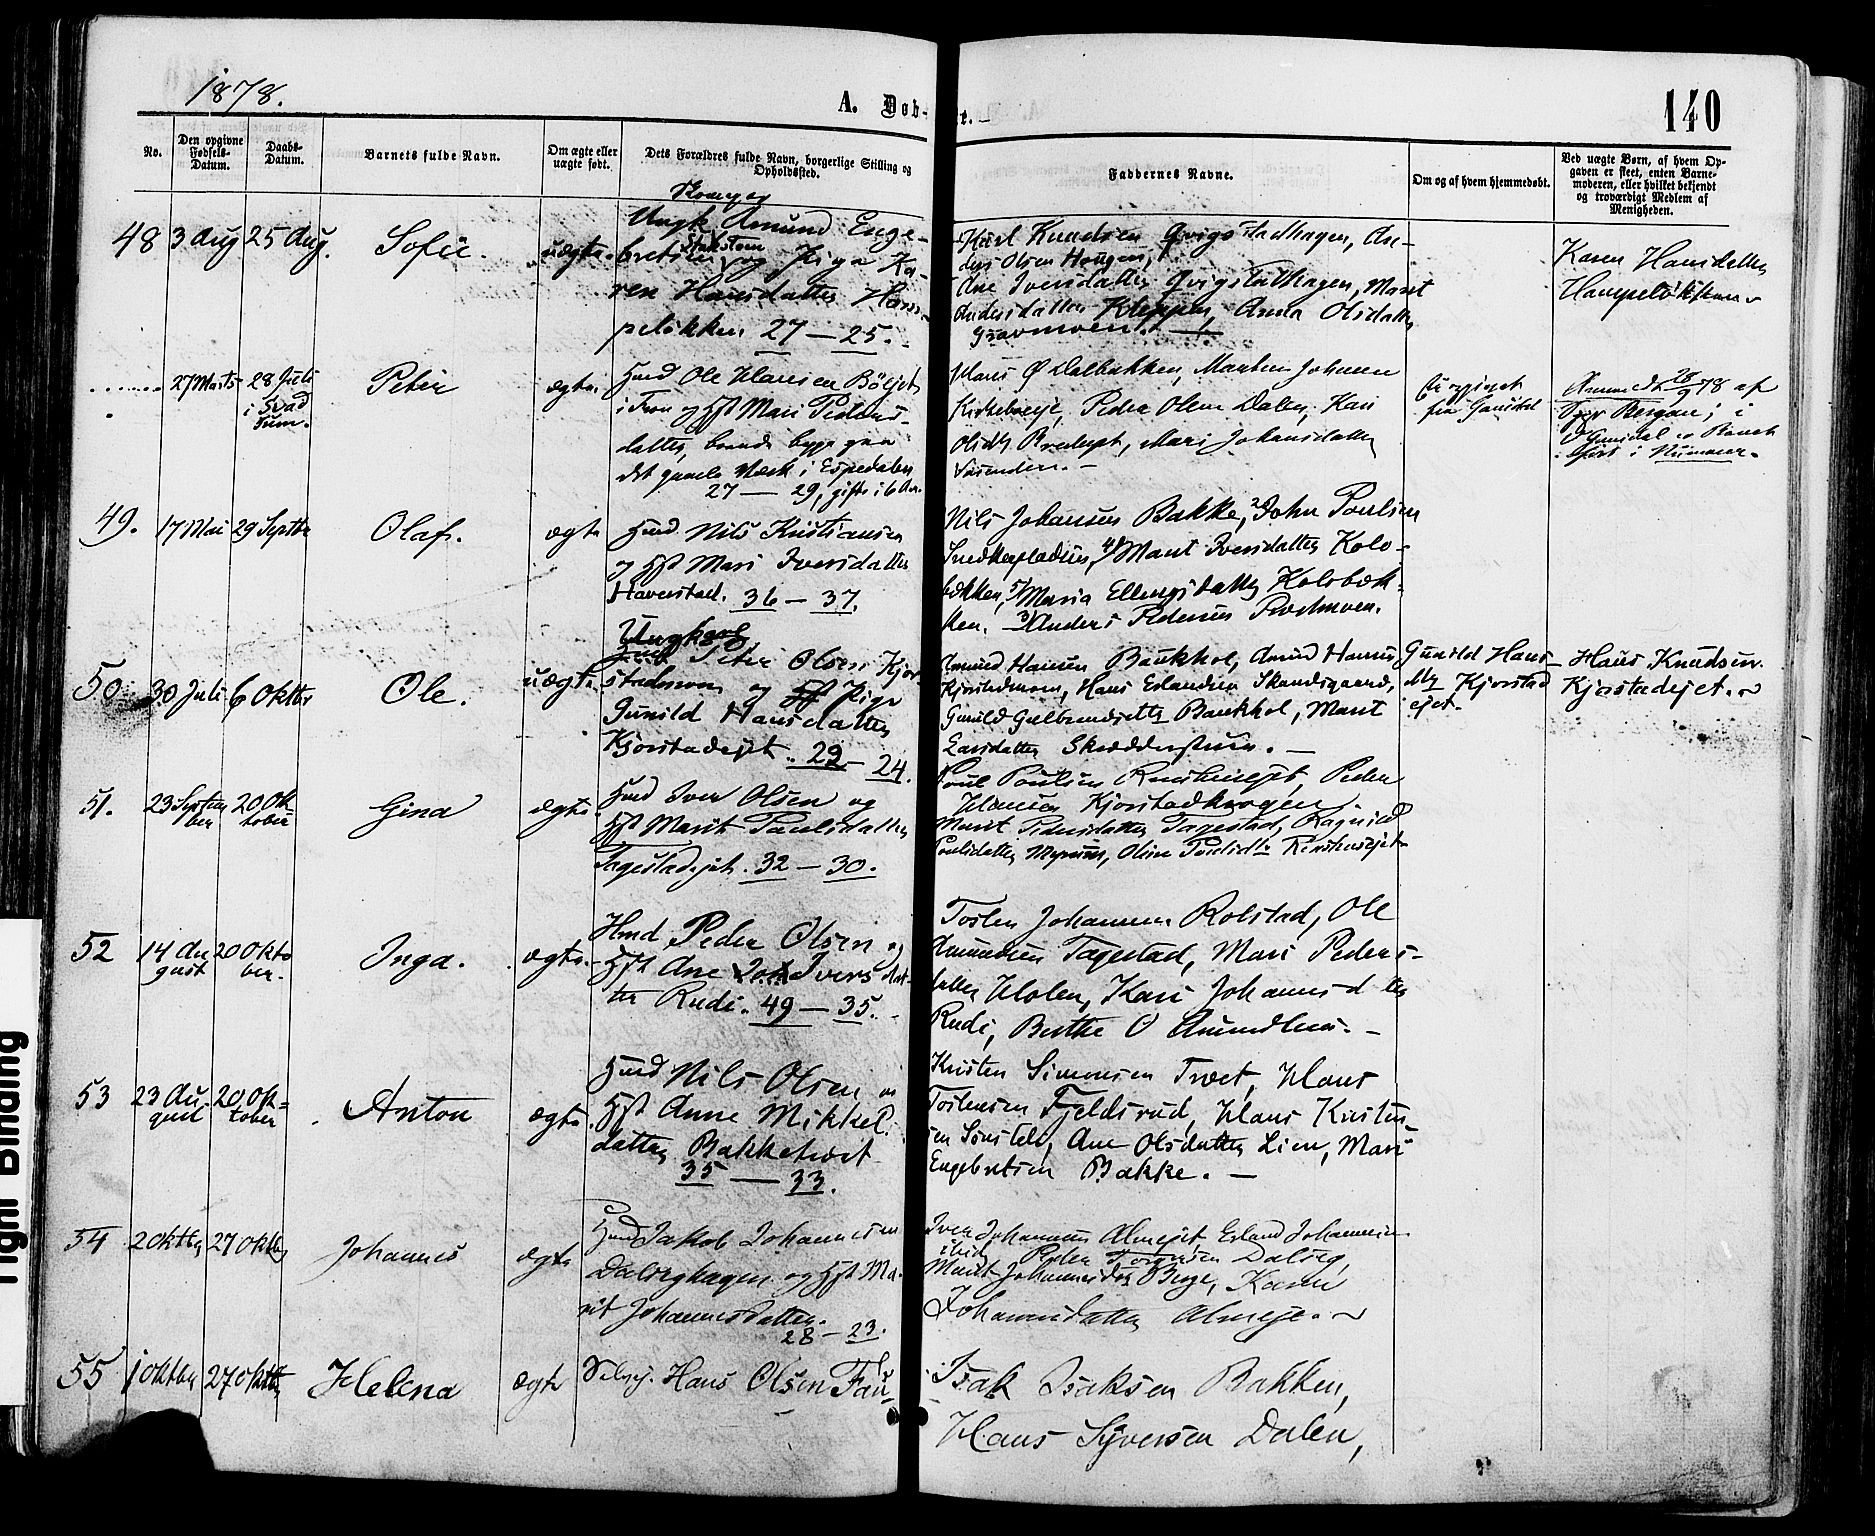 1878.
A. Døb-
te.
140
No.
Den opgivne Fødsels-Datum.
Daabs-Datum.
Barnets fulde Navn.
Om ægte eller uægte født.
Dets Forældres fulde Navn, borgerlige Stilling og Opholdssted.
Faddernes Navne.
Om og af hvem hjemmedøbt.
Ved uægte Børn, af hvem Op-
gaven er skeet, enten Barne-
moderen, eller hvilket bekjendt
og troværdigt Medlem af
Menigheden.
48 3 Aug 25 Aug. Sofie. uægte.
Ungk. Amund Enge-
bretsen og Pige Ka-
ren Hansdatter Ham-
peløkken 27 — 25.
Karl Knudsen Qvigstadhagen, An-
ders Olsen Haugen,
Ane Iversdatter Qvigstadhagen, Marit
Andersdatter Kleppen, Anna Olsdatter
Karen Hansdatter
Hampeløkken
27 Marts 28 Juli
i Svad
sum.
Peter ægte.
Hmd Ole Hansen
i Fron og Hst Mari Peders-
datter,
det gamle Værk i Espedalen
27 — 29, gifte i 6 Aar.
Hans Ø Dalbakken, Marten Johannes
Kirkeboreje, Peder Olsen Dalen, Kari
Olsdtr Bredejet, Mari Johansdatter
fra Gausdal
af
Bergan; i
49. 17 Mai 29 Septbr Olaf. ægte
Hmd. Nils Kristiansen
og Hst Mari Iversdatter
Haverstad. 36 — 37.
Nils Johansen Bakke, 2) John Poulsen
Snedkerpladsen, 4) Marit Iversdatter Kolo-
bækken, 5) Maria Ellingsdatter Kolobæk-
ken. 3) Anders Pedersen
50 30 Juli 6 Oktbr Ole. uægte.
Ungkarl
Peter Olsen Kjør-
stadmoen og Pige
Gunild Hansdatter
Kjørstadejet. 29 — 24.
Amund Hansen Baukhol, Amund Hansen
Kjørstadmoen, Hans Erlandsen Skandsgaard,
Gunild Gulbrandsdatter Baukhol, Marit
Larsdatter Skrædderstuen. —
Gunild Hans-
dtr Kjørstad
ejet.
Hans Knudsen
Kjørstadejet.
51. 23 Septem
ber
20 Ok
tober
Gina ægte.
Hmd Iver Olsen og
Hst Marit Paulsdatter
Tagestadejet. 32 — 30.
Poul Poulsen Ruskinejet, Peder
Hansen Kjørstadhagen.
Marit Pedersdatter Tagestad, Ragnild
Poulsdatter Myrum, Oline Poulsdtr
52 14 Au
gust
20 Okto
ber.
Inga. ægte.
Hmd Peder Olsen og
Hst Ane Ivers dat-
ter Rudi. 49 — 35.
Tosten Johannesen Rolstad, Ole
Amundsen Tagestad, Mari Peders-
datter Holen, Kari Johannesdtter
Rudi, Berthe O Amundstuen. —
53 23 Au-
gust
20 Ok=
tober
Anton ægte.
Hmd Nils Olsen og
Hst Anne Mikkels
datter Bakketræet
35 — 33.
Kristen Simonsen Træet, Hans
Tostensen Fjeldsrud, Hans Kristen-
sen Ane Olsdatter Lien, Mari
Engebretsen Bakke. —
54 2 Oktbr 27 Oktbr Johannes ægte
Hmd Jakob Johannesen
Dalseghagen og Hst Ma-
rit Johannesdatter.
28 — 23.
Iver Johannesen Almejet Erland Johannesen
ibid, Peder Dalseg,
Marit Johannesdtr Berge, Karen
Johannesdatter Almeje.
55 1 Oktber 27 Oktbr Helena ægte
Selvej. Hans Olsen Fau-
Isak Isaksen Bakken,
Hans Syversen Dalen,
Tight Binding